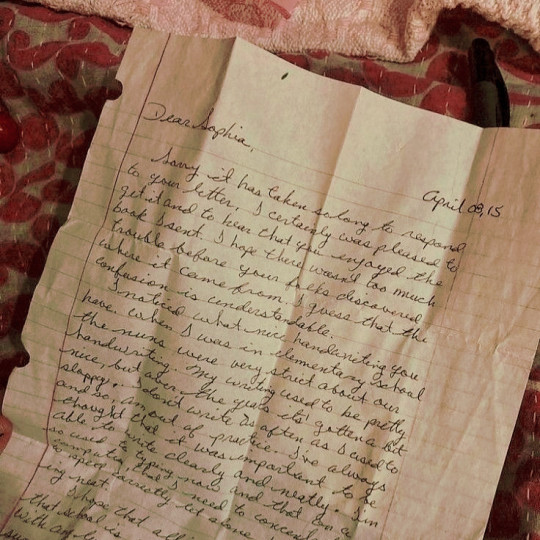 April 09, 15
Dear Sophia,
Sorry it has taken so long to respond
to your letter. I certainly was pleased to
get it and to hear that you enjoyed the
book I sent. I hope there wasn't too much
trouble before your folks discovered
where it came from. I guess that the
confusion is understandable.
I noticed what nice handwriting you
have. When I was in elementary school
the nuns were very strict about our
handwriting. My writing used to be pretty
nice, but over the years it's gotten a bit
sloppy. I don't write as often as I used to
and so, am out of practice. I've always
thought that it was important to be
able to write clearly and neatly. I'm
so used to typing now and that on a
computer, that I need to
correctly let alone
ing neat.
I hope that all
that school is